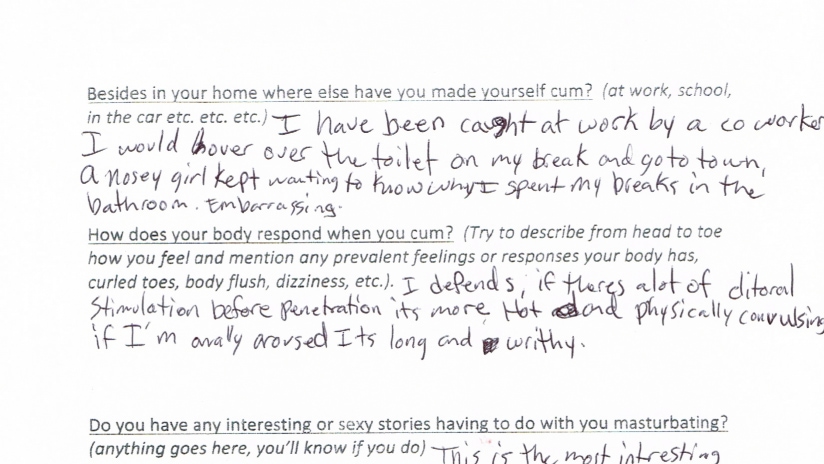 Besides in your home where else have you made yourself cum? (at work, school,
in the car etc. etc. etc.) I have been caught at work by a co worker
I would hover over the toilet on my break and go to town,
a nosey girl kept wanting to know why I spent my breaks in the
bathroom. Embarrassing.
How does your body respond when you cum? (Try to describe from head to toe
how you feel and mention any prevalent feelings or responses your body has,
curled toes, body flush, dizziness, etc.). I depends, if theres alot of clitoral
Stimulation before penetration its more Hot and physically convulsing
if I'm anally aroused Its long and writhy.
Do you have any interesting or sexy stories having to do with you masturbating?
(anything goes here, you'll know if you do) This is the most intresting